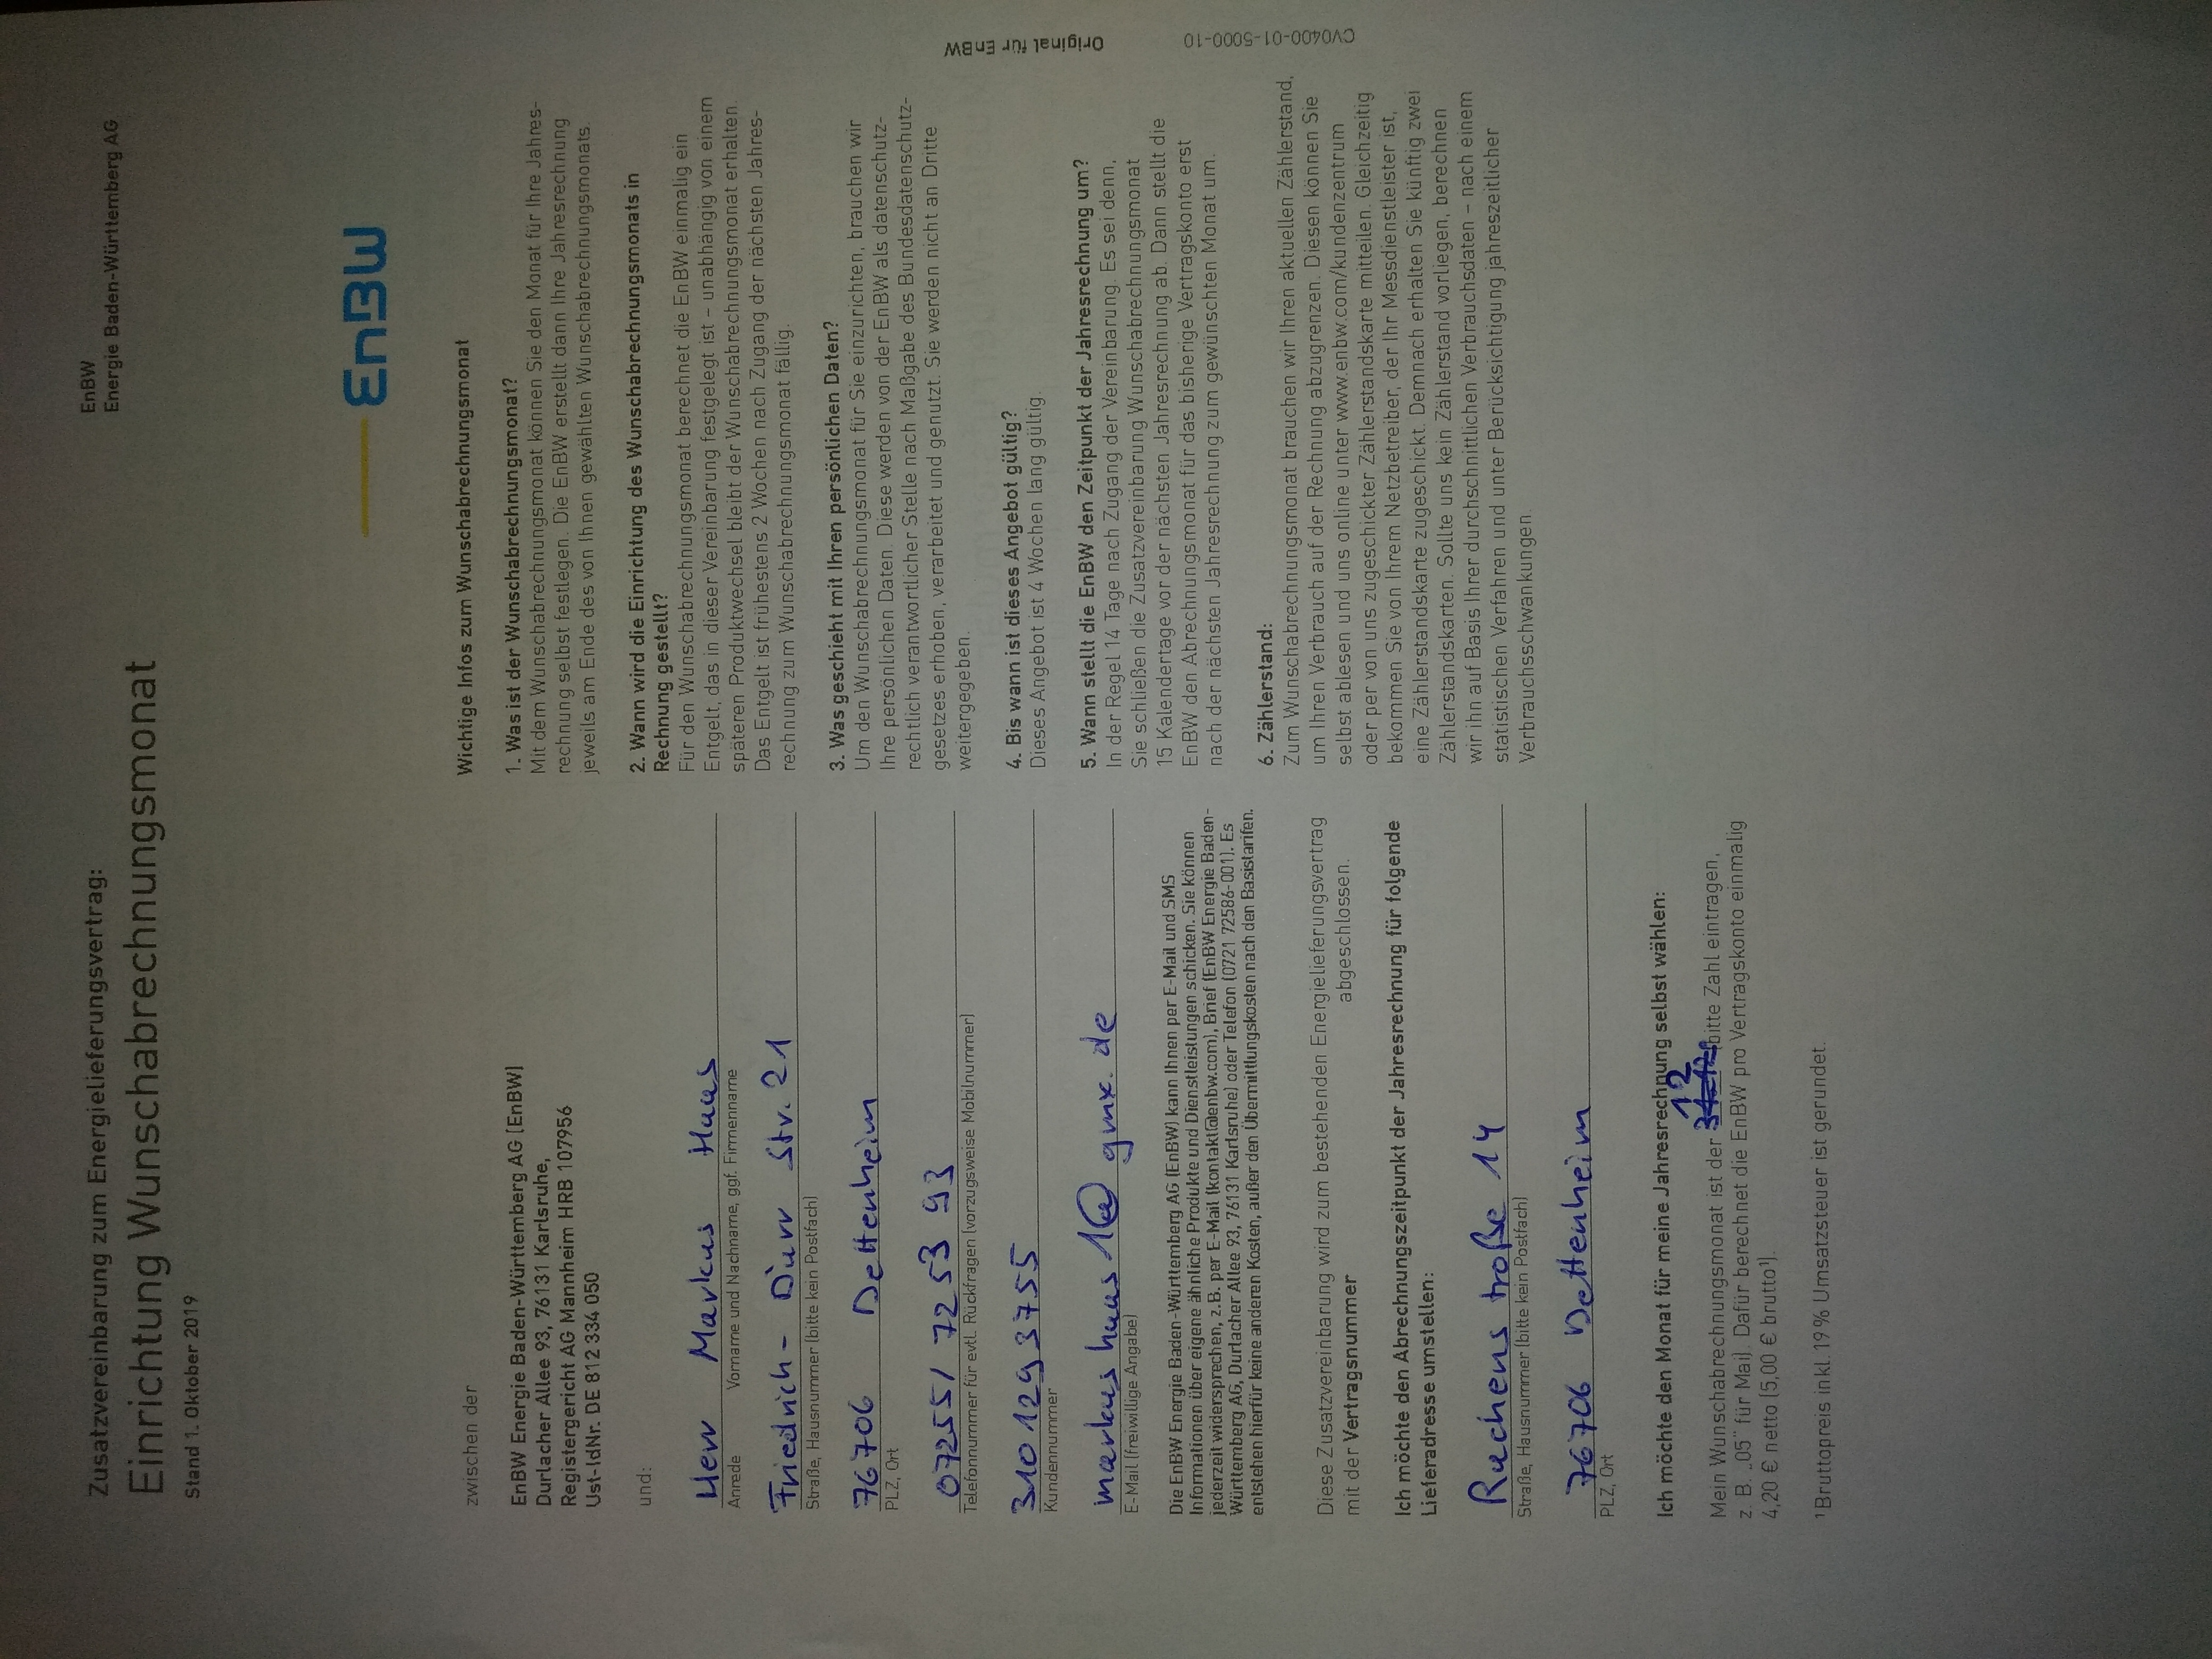 Zusatzvereinbarung zum Energielieferungsvertrag:
Einrichtung Wunschabrechnungsmonat
Stand 1. Oktober 2019
EnBW
Energie Baden-Württemberg AG
EnBW
zwischen der
EnBW Energie Baden-Württemberg AG (EnBW)
Durlacher Allee 93, 76131 Karlsruhe,
Registergericht AG Mannheim HRB 107956
Ust-IdNr. DE 812 334 050
und:
Herr Markus Haas
Anrede Vorname und Nachname, ggf. Firmenname
Friedrich-Dürr Str. 21
Straße, Hausnummer (bitte kein Postfach)
76706 Dettenheim
PLZ, Ort
07255/ 72 53 93
Telefonnummer für evtl. Rückfragen (vorzugsweise Mobilnummer)
310 129 3755
Kundennummer
markus haas 1@ gmx. de
E-Mail (freiwillige Angabe)
Die EnBW Energie Baden-Württemberg AG (EnBW) kann Ihnen per E-Mail und SMS
Informationen über eigene ähnliche Produkte und Dienstleistungen schicken. Sie können
jederzeit widersprechen, z.B. per E-Mail (kontakt@enbw.com), Brief (EnBW Energie Baden-
Württemberg AG, Durlacher Allee 93, 76131 Karlsruhe) oder Telefon (0721 72586-001). Es
entstehen hierfür keine anderen Kosten, außer den Übermittlungskosten nach den Basistarifen.
Diese Zusatzvereinbarung wird zum bestehenden Energielieferungsvertrag
mit der Vertragsnummer abgeschlossen.
Ich möchte den Abrechnungszeitpunkt der Jahresrechnung für folgende
Lieferadresse umstellen:
Rachenstroße 14
Straße, Hausnummer (bitte kein Postfach)
76706 Dettenheim
PLZ, Ort
Ich möchte den Monat für meine Jahresrechnung selbst wählen:
12
Mein Wunschabrechnungsmonat ist der (bitte Zahl eintragen,
z. B. „05" für Mai). Dafür berechnet die EnBW pro Vertragskonto einmalig
4,20 € netto (5,00 € brutto¹).
¹ Bruttopreis inkl. 19 % Umsatzsteuer ist gerundet.
Wichtige Infos zum Wunschabrechnungsmonat
1. Was ist der Wunschabrechnungsmonat?
Mit dem Wunschabrechnungsmonat können Sie den Monat für Ihre Jahres-
rechnung selbst festlegen. Die EnBW erstellt dann Ihre Jahresrechnung
jeweils am Ende des von Ihnen gewählten Wunschabrechnungsmonats.
2. Wann wird die Einrichtung des Wunschabrechnungsmonats in
Rechnung gestellt?
Für den Wunschabrechnungsmonat berechnet die EnBW einmalig ein
Entgelt, das in dieser Vereinbarung festgelegt ist – unabhängig von einem
späteren Produktwechsel bleibt der Wunschabrechnungsmonat erhalten.
Das Entgelt ist frühestens 2 Wochen nach Zugang der nächsten Jahres-
rechnung zum Wunschabrechnungsmonat fällig.
3. Was geschieht mit Ihren persönlichen Daten?
Um den Wunschabrechnungsmonat für Sie einzurichten, brauchen wir
Ihre persönlichen Daten. Diese werden von der EnBW als datenschutz-
rechtlich verantwortlicher Stelle nach Maßgabe des Bundesdatenschutz-
gesetzes erhoben, verarbeitet und genutzt. Sie werden nicht an Dritte
weitergegeben.
4. Bis wann ist dieses Angebot gültig?
Dieses Angebot ist 4 Wochen lang gültig.
5. Wann stellt die EnBW den Zeitpunkt der Jahresrechnung um?
In der Regel 14 Tage nach Zugang der Vereinbarung. Es sei denn,
Sie schließen die Zusatzvereinbarung Wunschabrechnungsmonat
15 Kalendertage vor der nächsten Jahresrechnung ab. Dann stellt die
EnBW den Abrechnungsmonat für das bisherige Vertragskonto erst
nach der nächsten Jahresrechnung zum gewünschten Monat um.
6. Zählerstand:
Zum Wunschabrechnungsmonat brauchen wir Ihren aktuellen Zählerstand,
um Ihren Verbrauch auf der Rechnung abzugrenzen. Diesen können Sie
selbst ablesen und uns online unter www.enbw.com/kundenzentrum
oder per von uns zugeschickter Zählerstandskarte mitteilen. Gleichzeitig
bekommen Sie von Ihrem Netzbetreiber, der Ihr Messdienstleister ist,
eine Zählerstandskarte zugeschickt. Demnach erhalten Sie künftig zwei
Zählerstandskarten. Sollte uns kein Zählerstand vorliegen, berechnen
wir ihn auf Basis Ihrer durchschnittlichen Verbrauchsdaten – nach einem
statistischen Verfahren und unter Berücksichtigung jahreszeitlicher
Verbrauchsschwankungen.
Original für EnBW
CV0400-01-5000-10